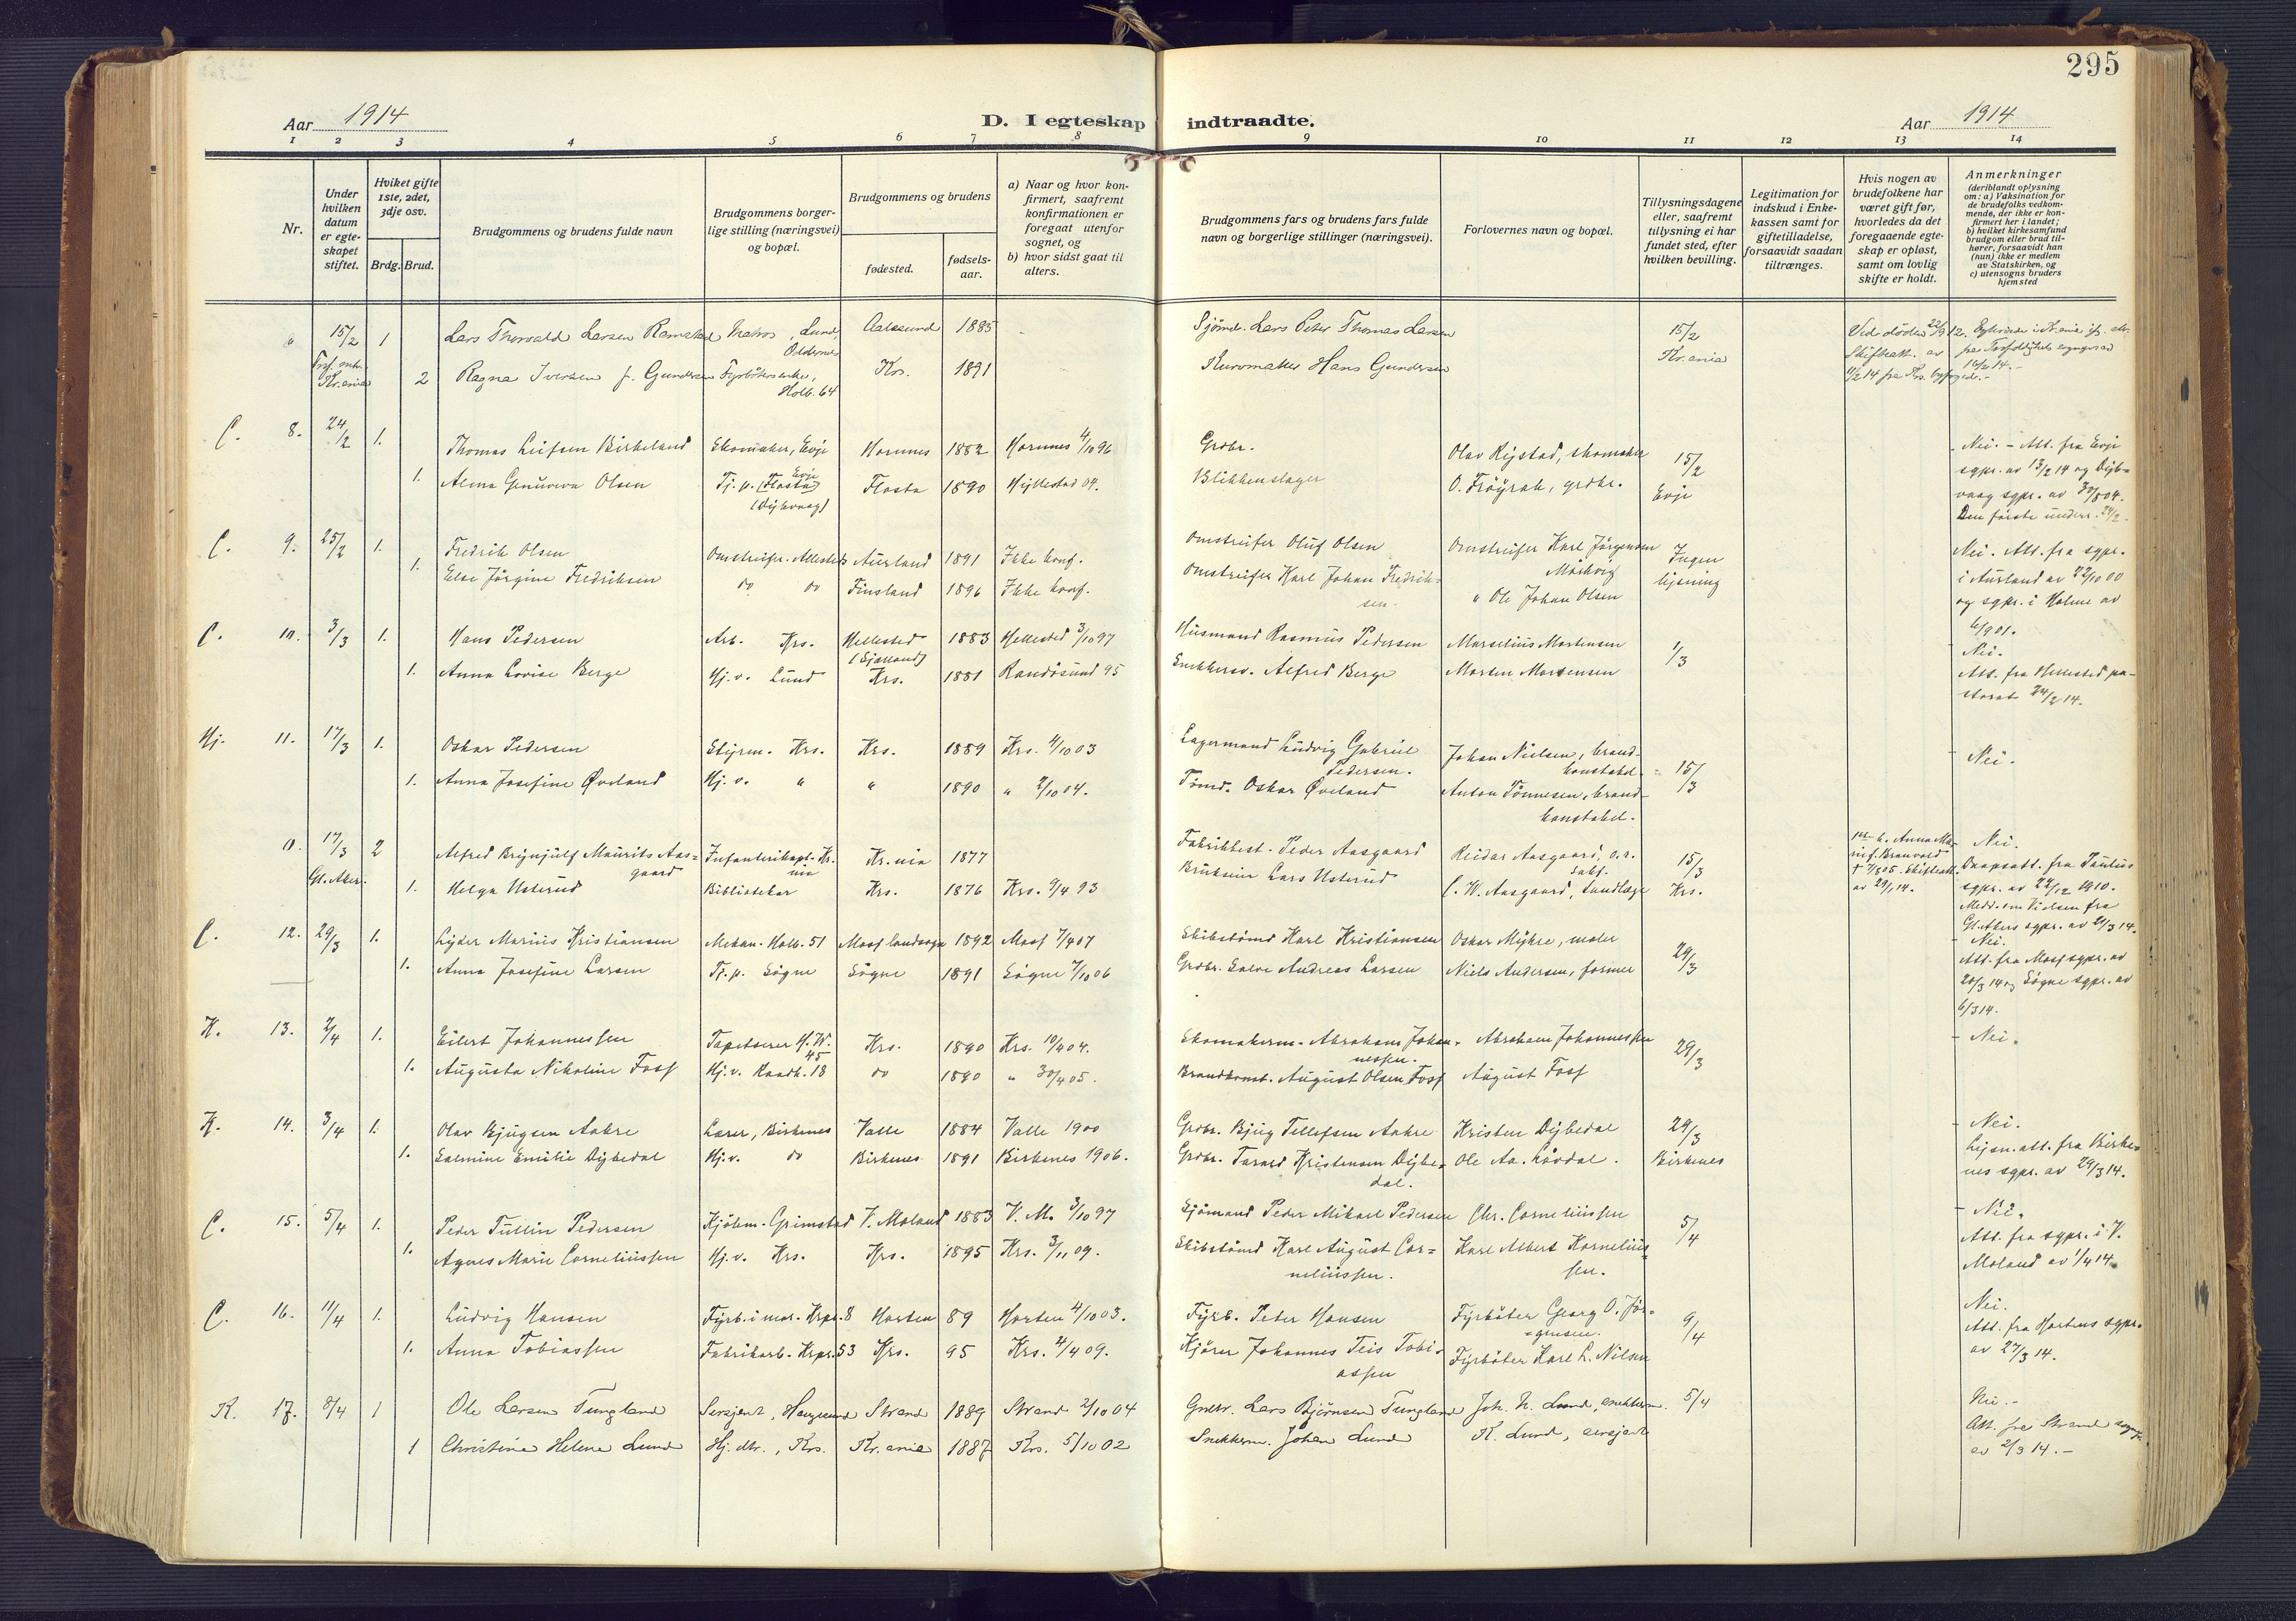 295
Aar 1914
D. I egteskap indtraadte.
Aar 1914
1 2 3 4 5 6 7 8 9 10 11 12 13 14
Nr.
Under hvilken datum er egte-skapet stiftet.
Hviket gifte 1ste, 2det, 3dje osv.
Brdg. Brud.
Brudgommens og brudens fulde navn
Brudgommens borger-lige stilling (næringsvei) og bopæl.
Brudgommens og brudens
fødested.
fødsels-aar.
a) Naar og hvor kon-firmert, saafremt konfirmationen er foregaat utenfor sognet, og
b) hvor sidst gaat til alters.
Brudgommens fars og brudens fars fulde navn og borgerlige stillinger (næringsvei).
Forlovernes navn og bopæl.
Tillysningsdagene eller, saafremt tillysning ei har fundet sted, efter hvilken bevilling.
Legitimation for indskud i Enke-kassen samt for giftetilladelse, forsaavidt saadan tiltrænges.
Hvis nogen av brudefolkene har været gift før, hvorledes da det foregaaende egte-skap er opløst, samt om lovlig skifte er holdt.
Anmerkninger
(deriblandt oplysning om: a) Vaksination for de brudefolks vedkom-mende, der ikke er kon-firmert her i landet; b) hvilket kirkesamfund brudgom eller brud til-hører, forsaavidt han (hun) ikke er medlem av Statskirken, og c) utensogns bruders hjemsted
" 15/2 1 Lars Thorvald Larsen Ramstad Matros, Lund, Aalesund 1885 - Sjømd. Lars Peter Thomas Larsen 15/2 Ved døden 22/9 12.
Kr.ania 2 Ragna Iversen f. Gundersen Fyrbøterenke, Holb. 64 Krs. 1891 Kurvmaker Hans Gundersen Kr.ania Skifteatt. av 11/2 14 fra Krs. byfoged.-
C. 8. 24/2 1. Thomas Leifsen Birkeland Skomaker, Evje Hornnes 1882 Hornnes 4/10 96 Grdbr. Olav Rijstad, skomaker 15/2 Nei. - Att. fra Evje
1. Alma Genueva Olsen Tj.p. (Flosta) Evje (Dybvaag) Flosta 1890 Hyllestad 04. Blikkenslager O. Frøyrak, grdbr. Evje sgpr. av 13/2 14 og Dyb-vaag sgpr. av 30/8 04. Den første underr. 24/2.
C. 9. 25/2 1. Fredrik Olsen Omstreifer. Allesteds Aurland 1891 Ikke konf. Omstreifer Oluf Olsen Omstreifer Karl Jørgensen Ingen Nei. Att. fra sgpr.
1. Else Jørgine Fredriksen do do Finsland 1896 Ikke konf. Omstreifer Karl Johan Fredrik-sen. " Ole Johan Olsen lysning i Aurland av 22/10 00 og sgpr. i Holme av 6/9 01.
C. 10. 3/3 1. Hans Pedersen Arb. Krs. Hellested (Sjælland) 1883 Hellested 3/10 97 Husmand Rasmus Pedersen Marselius Mortensen 1/3 Nei.
1. Anna Lovise Berge Hj.v. Lund Krs. 1881 Randøsund 95 Snekkersv. Alfred Berge Morten Mortensen Att. fra Hellested pa-storat 24/2 14.
Hj. 11. 17/3 1. Oskar Pedersen Styrm. Krs. Krs. 1889 Krs. 4/10 03 Lagermand Ludvig Gabriel Pedersen. Johan Nielsen, brand-konstabel. 15/3 Nei.
1. Anna Josefine Øveland Hj.v. " " 1890 " 2/10 04. Tømd. Oskar Øveland Anton Tønnesen, brand-konstabel.
0. 17/3 2 Alfred Brynjulf Maurits Aas-gaard Infanterikapt. Kr.nia Kr.nia 1877 Fabrikbest. Peder Aasgaard Reidar Aasgaard, o.r. sakf. 15/3 Nei.
Gl. Aker. 1. Helga Usterud Bibliotekar Krs. 1876 Krs. 9/4 93 Lars Usterud C. W. Aasgaard, tandlæge Krs. av 29/1 14. Daapsatt. fra Paulus sgpr. av 22/12 1910. Medd. om Vielsen fra Gl. Akers sgpr. av 21/3 14.
C. 12. 29/3 1. Lyder Marius Kristiansen Mekan. Holb. 51 Moss landsogn 1892 Moss 7/4 07 Skibstømd Karl Kristiansen Oskar Myhre, maler 29/3 Nei.
1. Anna Josefine Larsen Tj.p. Søgne Søgne 1891 Søgne 7/10 06 Grdbr. Salve Andreas Larsen Niels Andersen, former Att. fra Moss sgpr. av 20/3 14 og Søgne sgpr. av 6/3 14.
K. 13. 2/4 1. Eilert Johannessen Tapetserer H.W. 45 Krs. 1890 Krs. 10/4 04. Skomakerm. Abraham Johan-nessen. Abraham Johannessen 29/3 Nei.
1. Augusta Nikoline Foss Hj.v. Raadh. 18 do 1890 " 30/4 05. Brandkonst. August Olsen Foss August Foss
K. 14. 3/4 1. Olav Bjugsen Aakre Lærer, Birkenes Valle 1884 Valle 1900 Grdbr. Bjug Tellefsen Aakre Kristen Dybedal 29/3 Nei.
1. Salmine Emilie Dybedal Hj.v. do Birkenes 1891 Birkenes 1906. Grdbr. Tarald Kristensen Dybe-dal. Ole Aa. Løvdal. Birkenes Lysn.att. fra Birke-nes sgpr. av 29/3 14.
C. 15. 5/4 1. Peder Tullin Pedersen Kjøbm. Grimstad V. Moland 1883 V. M. 3/10 97 Sjømand Peder Mikael Pedersen Chr. Corneliussen 5/4 Nei.
1. Agnes Marie Corneliussen Hj.v. Krs. Krs. 1895 Krs. 3/11 09. Skibstømd Karl August Cor-neliussen. Karl Albert Kornelius-sen. Att. fra sgpr. i V. Moland av 1/4 14.
C. 16. 11/4 1. Ludvig Hansen Fyrb. i mar. Krpr. 8 Horten 89 Horten 4/10 03. Fyrb. Peter Hansen Fyrbøter Georg O. Jør-gensen. 9/4 Nei.
1. Anna Tobiassen Fabrikarb. Krpr. 53 Krs. 95 Krs. 4/4 09. Kjører Johannes Teis Tobi-assen Fyrbøter Karl L. Nilsen Att. fra Hortens sgpr. av 27/3 14.
K. 17. 8/4 1 Ole Larsen Tungland Sersjent, Haugesund Strand 1889 Strand 2/10 04 Grdbr. Lars Bjørnsen Tungland Joh. N. Lund, snekkerm. 5/4 Nei.-
1 Christine Helene Lund Hj. dtr., Krs. Kr.ania 1887 Krs. 5/10 02 Snekkerm. Johan Lund K. Lund, sersjent Att. fra Strand sognpr. av 2/3 14.-